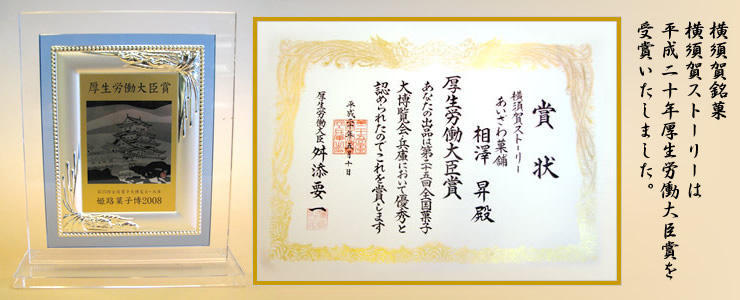 厚生労働大臣賞
第25回全国菓子大博覧会・兵庫
姫路菓子博2008
賞状
横須賀ストーリー
あいざわ菓舗
相澤 昇 殿
厚生労働大臣賞
あなたの出品は第二十五回全国菓子
大博覧会・兵庫において優秀と
認められたのでこれを賞します
平成二十年五月十日
厚生労働大臣 舛添要一
横須賀銘菓
横須賀ストーリーは
平成二十年厚生労働大臣賞を
受賞いたしました。